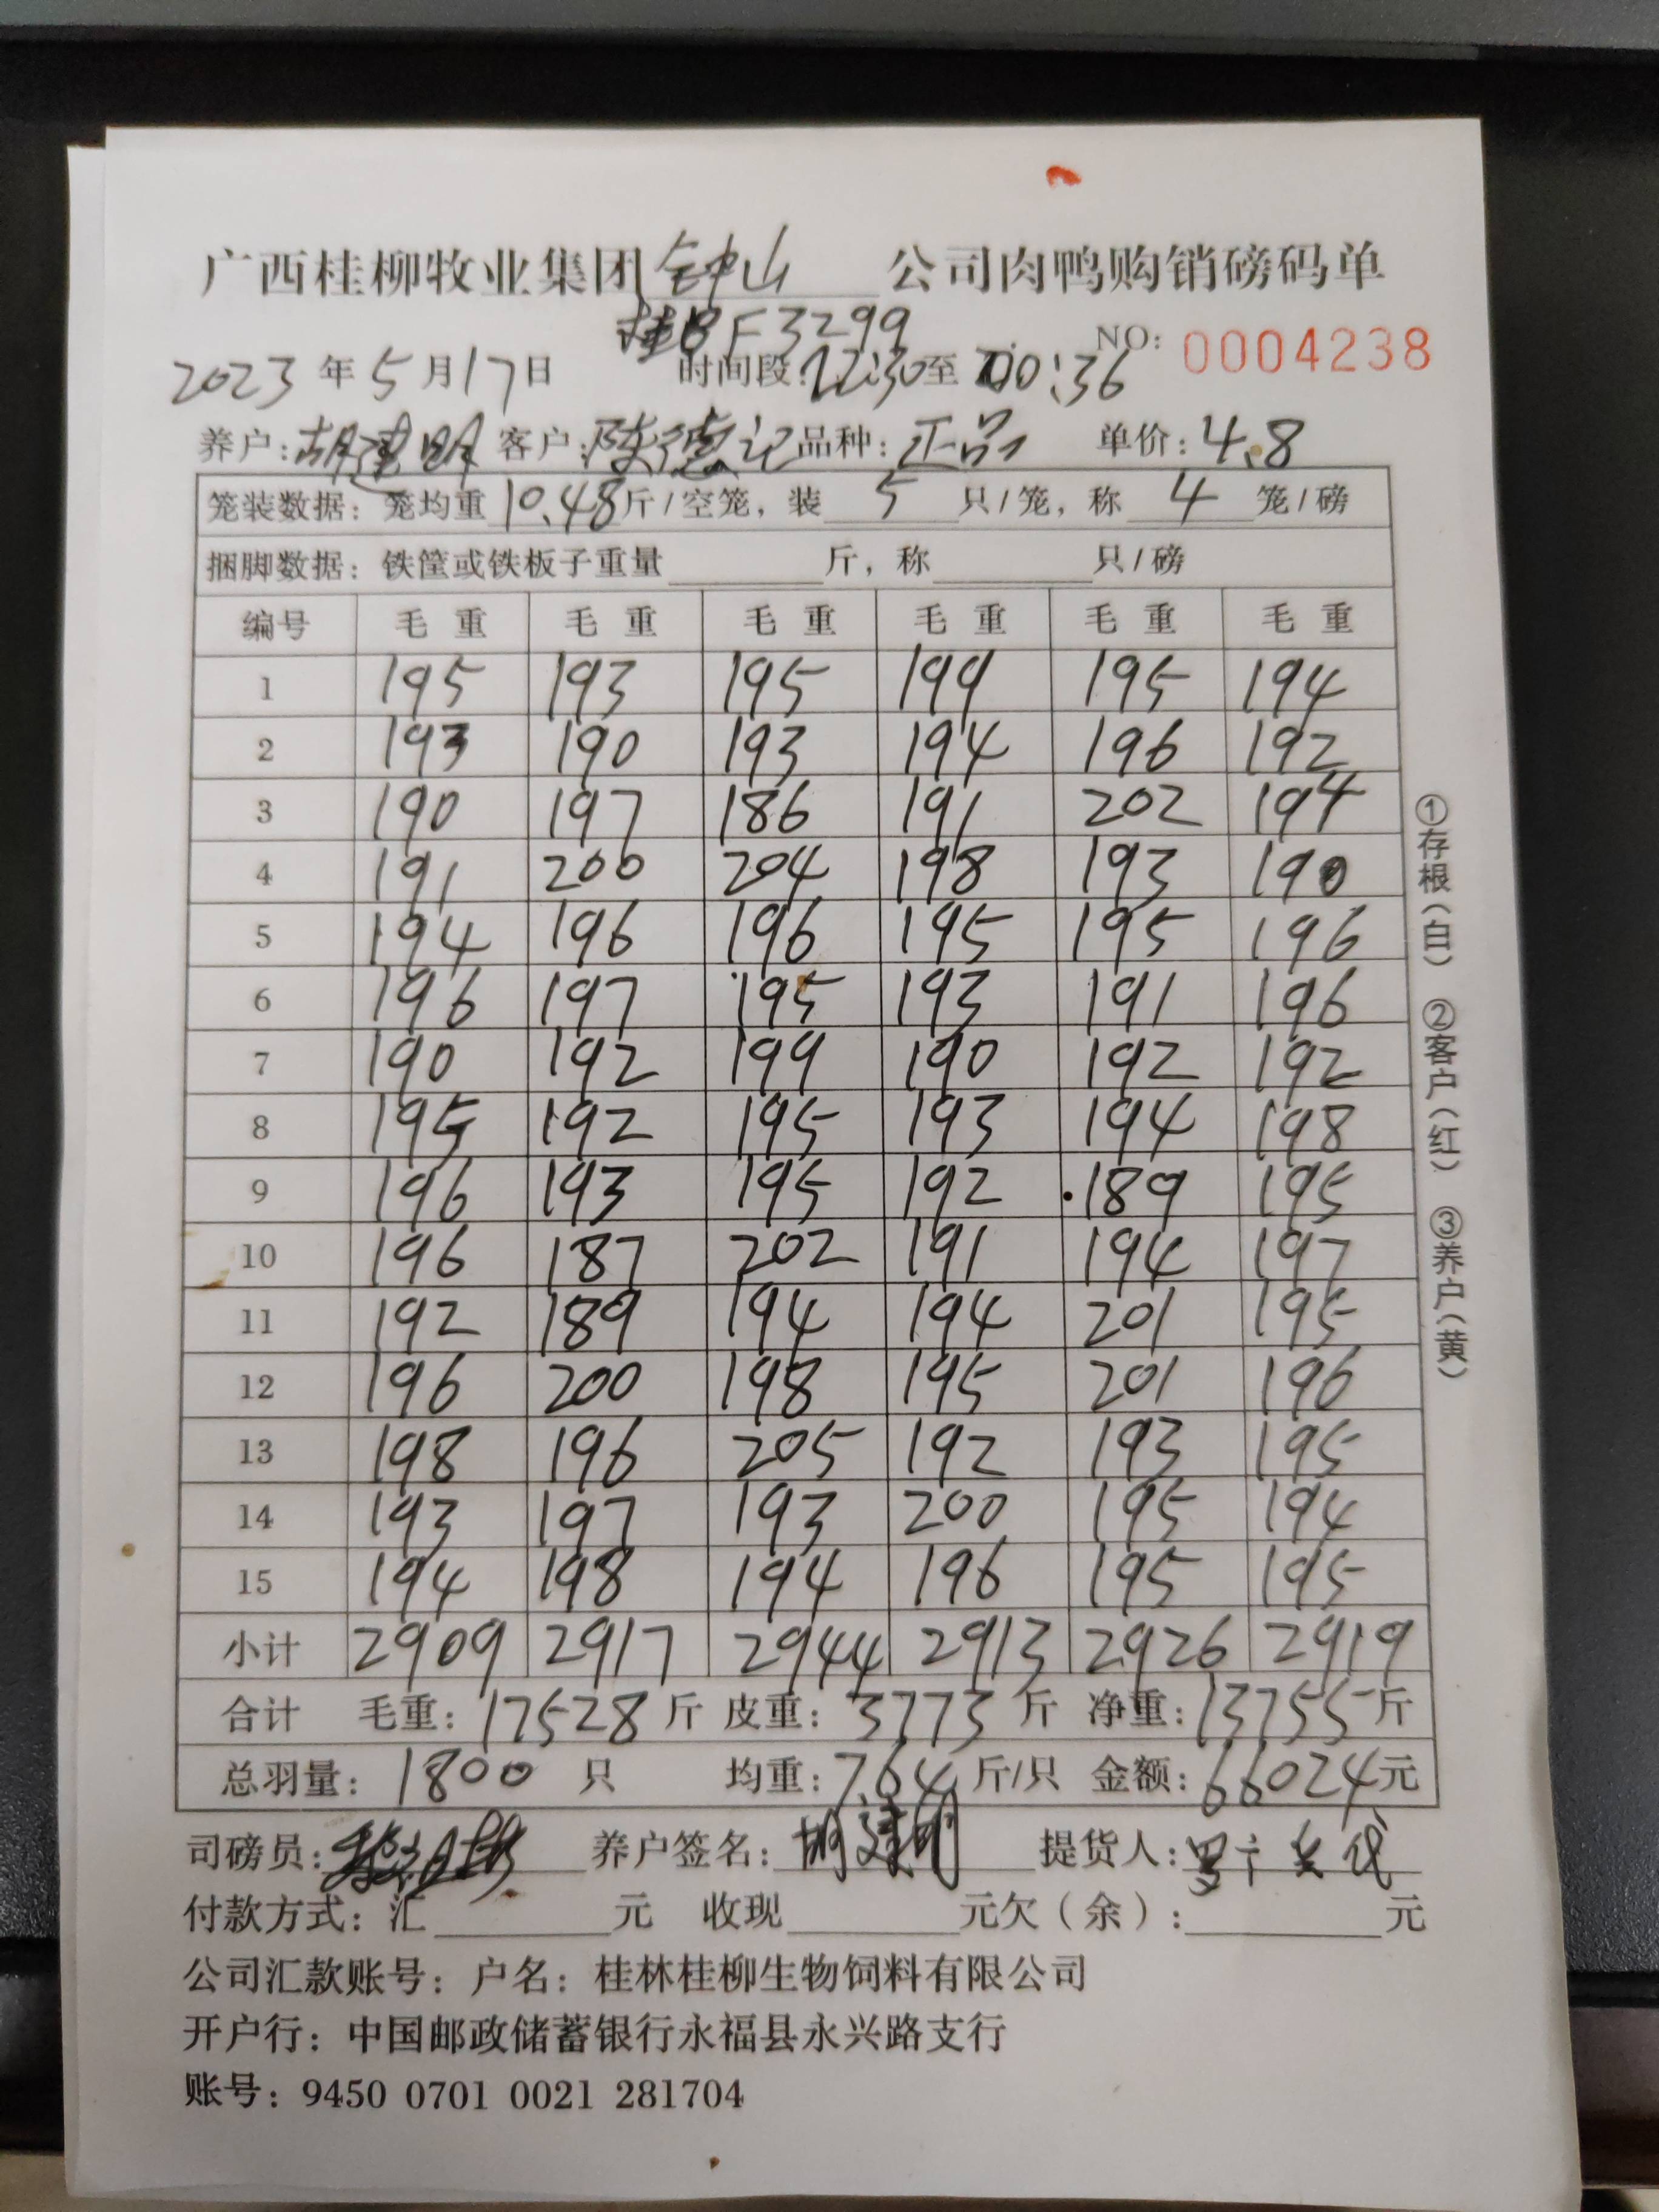 广西桂柳牧业集团钟山公司肉鸭购销磅码单
桂BF3299
NO: 0004238
2023年5月17日 时间段:22:30至00:36
养户:胡建明 客户:陈德记 品种:正品 单价:4.8
笼装数据:笼均重10.48斤/空笼,装5只/笼,称4笼/磅
捆脚数据:铁筐或铁板子重量 斤,称 只/磅
编号 毛重 毛重 毛重 毛重 毛重 毛重
1 195 193 195 199 195 194
2 193 190 193 194 196 192
3 190 197 186 191 202 194
4 191 200 204 198 193 190
5 194 196 196 195 195 196
6 196 197 195 193 191 196
7 190 192 199 190 192 192
8 195 192 195 193 194 198
9 196 193 195 192 189 195
10 196 187 202 191 194 197
11 192 189 194 194 201 195
12 196 200 198 195 201 196
13 198 196 205 192 193 195
14 193 197 193 200 195 194
15 194 198 194 196 195 195
小计 2909 2917 2944 2913 2926 2919
合计 毛重:17528斤 皮重:3773斤 净重:13755斤
总羽量:1800只 均重:7.64斤/只 金额:66024元
司磅员: 养户签名:胡建明 提货人:
付款方式:汇 元 收现 元欠(余): 元
公司汇款账号:户名:桂林桂柳生物饲料有限公司
开户行:中国邮政储蓄银行永福县永兴路支行
账号:9450 0701 0021 281704
①存根(白) ②客户(红) ③养户(黄)